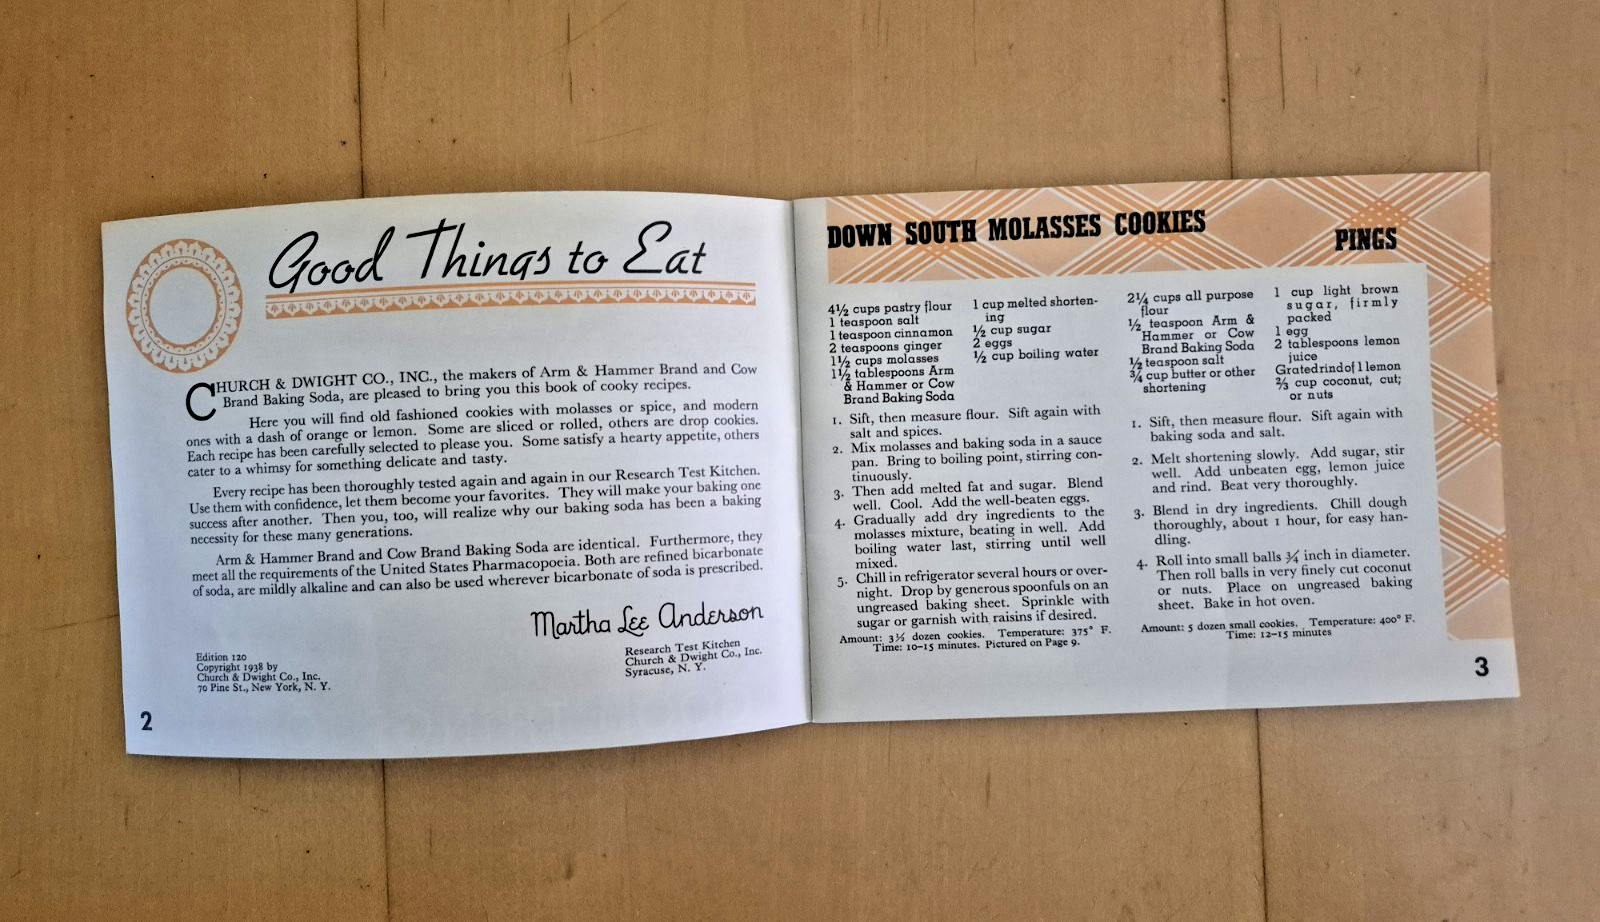 Good Things to Eat
CHURCH & DWIGHT CO., INC., the makers of Arm & Hammer Brand and Cow
Brand Baking Soda, are pleased to bring you this book of cooky recipes.
Here you will find old fashioned cookies with molasses or spice, and modern
ones with a dash of orange or lemon. Some are sliced or rolled, others are drop cookies.
Each recipe has been carefully selected to please you. Some satisfy a hearty appetite, others
cater to a whimsy for something delicate and tasty.
Every recipe has been thoroughly tested again and again in our Research Test Kitchen.
Use them with confidence, let them become your favorites. They will make your baking one
success after another. Then you, too, will realize why our baking soda has been a baking
necessity for these many generations.
Arm & Hammer Brand and Cow Brand Baking Soda are identical. Furthermore, they
meet all the requirements of the United States Pharmacopoeia. Both are refined bicarbonate
of soda, are mildly alkaline and can also be used wherever bicarbonate of soda is prescribed.
Martha Lee Anderson
Research Test Kitchen
Church & Dwight Co., Inc.
Syracuse, N. Y.
Edition 120
Copyright 1938 by
Church & Dwight Co., Inc.
70 Pine St., New York, N. Y.
2
DOWN SOUTH MOLASSES COOKIES
4½ cups pastry flour
1 teaspoon salt
1 teaspoon cinnamon
2 teaspoons ginger
1½ cups molasses
1½ tablespoons Arm
& Hammer or Cow
Brand Baking Soda
1 cup melted shorten-
ing
½ cup sugar
2 eggs
½ cup boiling water
1. Sift, then measure flour. Sift again with
salt and spices.
2. Mix molasses and baking soda in a sauce
pan. Bring to boiling point, stirring con-
tinuously.
3. Then add melted fat and sugar. Blend
well. Cool. Add the well-beaten eggs.
4. Gradually add dry ingredients to the
molasses mixture, beating in well. Add
boiling water last, stirring until well
mixed.
5. Chill in refrigerator several hours or over-
night. Drop by generous spoonfuls on an
ungreased baking sheet. Sprinkle with
sugar or garnish with raisins if desired.
Amount: 3½ dozen cookies. Temperature: 375° F.
Time: 10-15 minutes. Pictured on Page 9.
PINGS
2¼ cups all purpose
flour
½ teaspoon Arm &
Hammer or Cow
Brand Baking Soda
½ teaspoon salt
¾ cup butter or other
shortening
1 cup light brown
sugar, firmly
packed
1 egg
2 tablespoons lemon
juice
Grated rind of 1 lemon
⅔ cup coconut, cut;
or nuts
1. Sift, then measure flour. Sift again with
baking soda and salt.
2. Melt shortening slowly. Add sugar, stir
well. Add unbeaten egg, lemon juice
and rind. Beat very thoroughly.
3. Blend in dry ingredients. Chill dough
thoroughly, about 1 hour, for easy han-
dling.
4. Roll into small balls ¾ inch in diameter.
Then roll balls in very finely cut coconut
or nuts. Place on ungreased baking
sheet. Bake in hot oven.
Amount: 5 dozen small cookies. Temperature: 400° F.
Time: 12-15 minutes
3